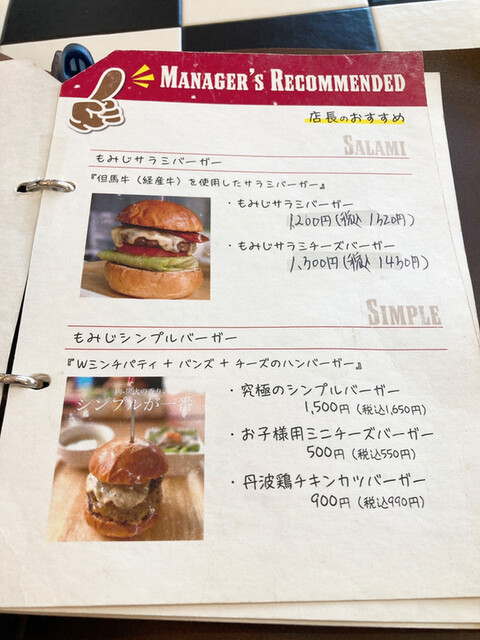 MANAGER'S RECOMMENDED
店長のおすすめ
SALAMI
もみじサラミバーガー
『但馬牛（経産牛）を使用したサラミバーガー』
・もみじサラミバーガー
1,200円(税込 1320円)
・もみじサラミチーズバーガー
1,300円(税込 1430円)
SIMPLE
もみじシンプルバーガー
『Wミンチパティ + バンズ + チーズのハンバーガー』
シンプルが一番
・究極のシンプルバーガー
1,500円（税込1,650円）
・お子様用ミニチーズバーガー
500円（税込550円）
・丹波鶏チキンカツバーガー
900円（税込990円）